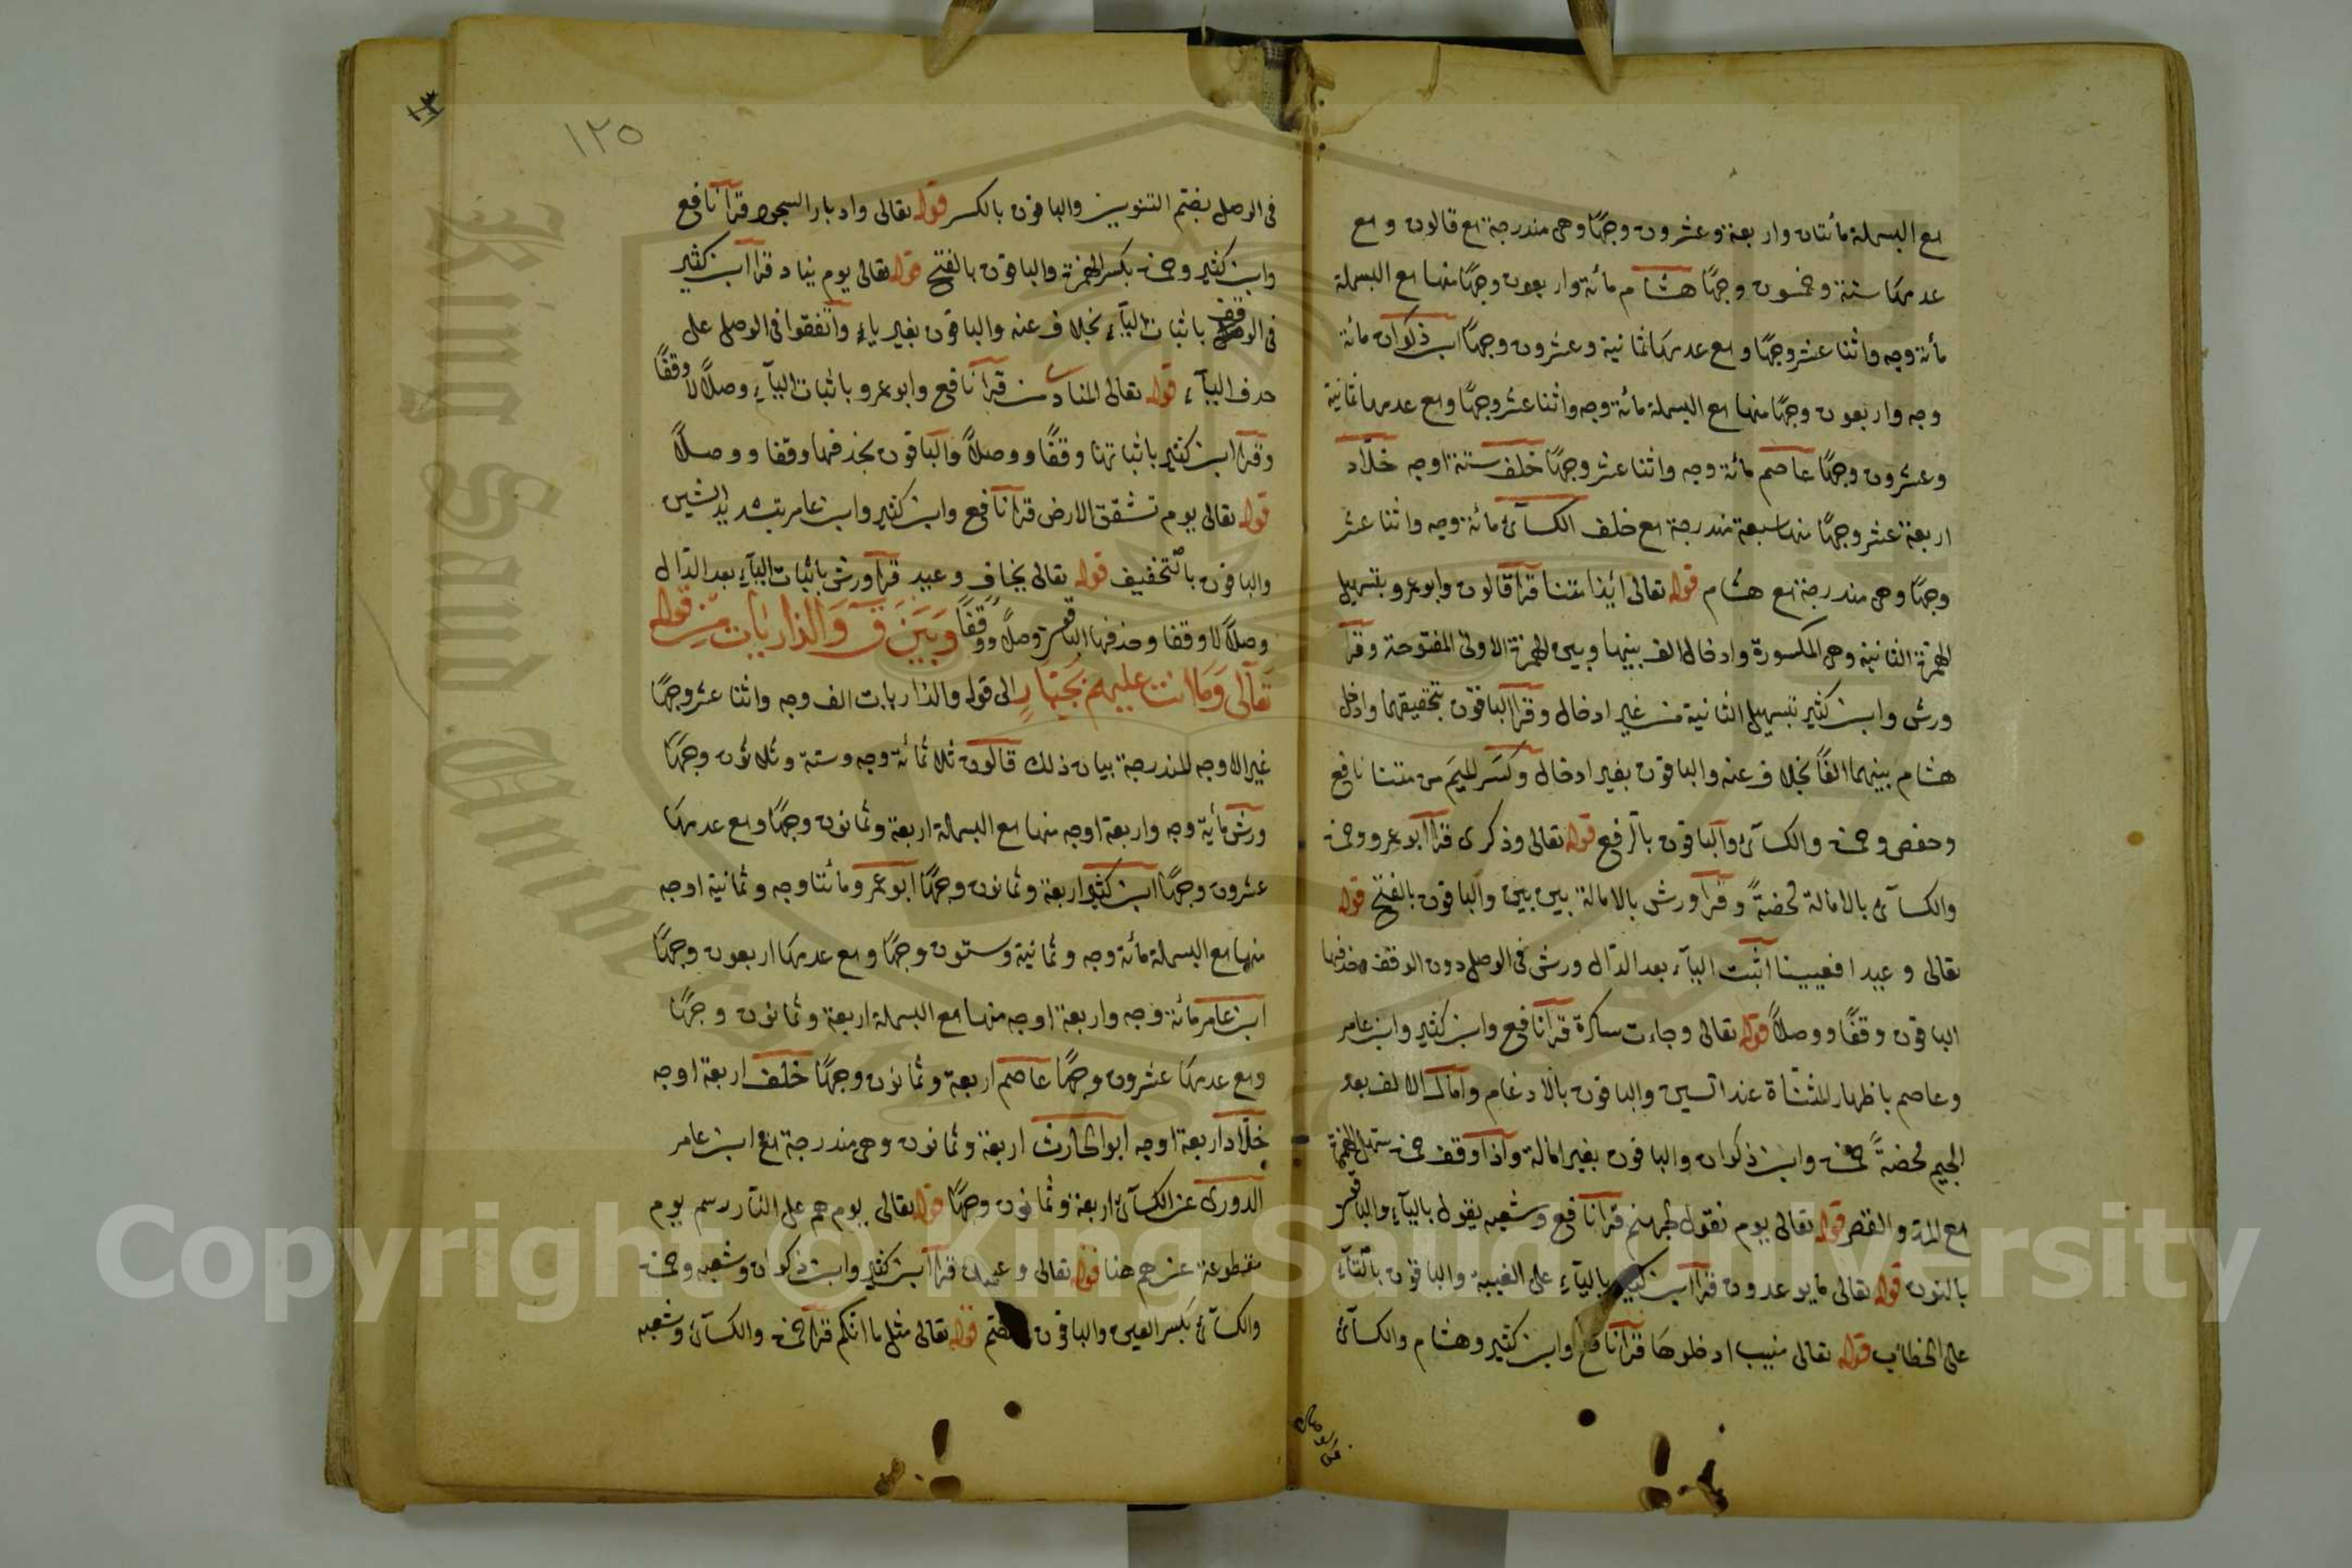 مع البسملة مائتان واربعة وعشرون وجهًا وهى مندرجة مع قالون ومع
عدمها ستة وخمسون وجهًا هشام مائة واربعون وجهًا منها مع البسملة
مأة وجه واثنا عشر وجهًا ومع عدمها ثمانية وعشرون وجهًا ابن ذكوان مائة
وجه واربعون وجهًا منها مع البسملة مائة وجه واثنا عشر وجهًا ومع عدمها ثمانية
وعشرون وجهًا عاصم مائة وجه واثنا عشر وجهًا خلف ستة اوجه خلّاد
اربعة عشر وجهًا منها سبعة مندرجة مع خلف الكسآئ مائة وجه واثنا عشر
وجهًا وهى مندرجة مع هشام قوله تعالى ائذا متنا قرأ قالون وابو عمرو بتسهيل
الهمزة الثانية وهى المكسورة وادخال الف بينها وبين الهمزة الاولى المفتوحة وقرأ
ورش وابن كثير بتسهيل الثانية من غير ادخال وقرأ الباقون بتحقيقهما وادخل
هشام بينهما الفًا بخلاف عنه والباقون بغير ادخال وكسر الميم من متنا نافع
وحفص وحمزة والكسآئ والباقون بالرفع قوله تعالى وذكرى قرأ أبو عمرو وحمزة
والكسآئ بالامالة محضةً وقرأ ورش بالامالة بين بين والباقون بالفتح قوله
تعالى وعيد افعيينا اثبت اليآء بعد الدّال ورش فى الوصل دون الوقف وحذفها
الباقون وقفًا ووصلاً قوله تعالى وجاءت سكرة قرأ نافع وابن كثير وابن عامر
وعاصم باظهار المثناة عند السين والباقون بالادغام وامال الالف بعد
الجيم محضةً حمزة وابن ذكوان والباقون بغير امالة واذا وقف حمزة سهل الهمزة
مع المدّ والقصر قوله تعالى يوم نقول لجهنم قرأ نافع وشعبه يقول باليآء والباقون
بالنون قوله تعالى ما يوعدون قرأ ابن كثير باليآء على الغيبة والباقون بالتّآء
على الخطاب قوله تعالى منيب ادخلوها قرأ نافع وابن كثير وهشام والكسآئ
فى الوصل
١٢٥
فى الوصل بضم التنوين والباقون بالكسر قوله تعالى وادبار السجود قرأ نافع
وابن كثير وحمزة بكسر الهمزة والباقون بالفتح قوله تعالى يوم يناد قرأ ابن كثير
فى الوقف باثبات اليآء بخلاف عنه والباقون بغير ياء واتفقوا فى الوصل على
حذف اليآء قوله تعالى المناد من قرأ نافع وابو عمرو باثبات اليآء وصلاً لا وقفًا
وقرأ ابن كثير باثباتها وقفًا ووصلاً والباقون بحذفها وقفا ووصلاً
قوله تعالى يوم تشقق الارض قرأ نافع وابن كثير وابن عامر بتشديد الشين
والباقون بالتخفيف قوله تعالى يخاف وعيد قرأ ورش باثبات اليآء بعد الدّال
وصلاً لا وقفا وحذفها الباقون وصلاً ووقفًا وَبَيْنَ قٓ وَالذاريات مِن قوله
تعالى وَمَا انت عليهم بجبّار الى قوله والذاريات الف وجه واثنا عشر وجهًا
غير الاوجه المندرجة بيان ذلك قالون ثلاثمائة وجه وستة وثلاثون وجهًا
ورش مأية وجه واربعة اوجه منها مع البسملة اربعة وثمانون وجهًا ومع عدمها
عشرون وجهًا ابن كثير اربعة وثمانون وجهًا ابو عمرو مائتا وجه وثمانية اوجه
منها مع البسملة مائة وجه وثمانية وستون وجهًا ومع عدمها اربعون وجهًا
ابن عامر مائة وجه واربعة اوجه منها مع البسملة اربعة وثمانون وجهًا
ومع عدمها عشرون وجهًا عاصم اربعة وثمانون وجهًا خلف اربعة اوجه
خلّاد اربعة اوجه ابو الحارث اربعة وثمانون وهى مندرجة مع ابن عامر
الدورى عن الكسآئ اربعة وثمانون وجهًا قوله تعالى يوم هم على النّار رسم يوم
مقطوعة عن هم هنا قوله تعالى وعيون قرأ ابن كثير وابن ذكوان وشعبه وحمزة
والكسآئ بكسر العين والباقون بالضم قوله تعالى مثل ما انكم قرأ حمزة والكسآئ وشعبه
King Saud University
Copyright © King Saud University